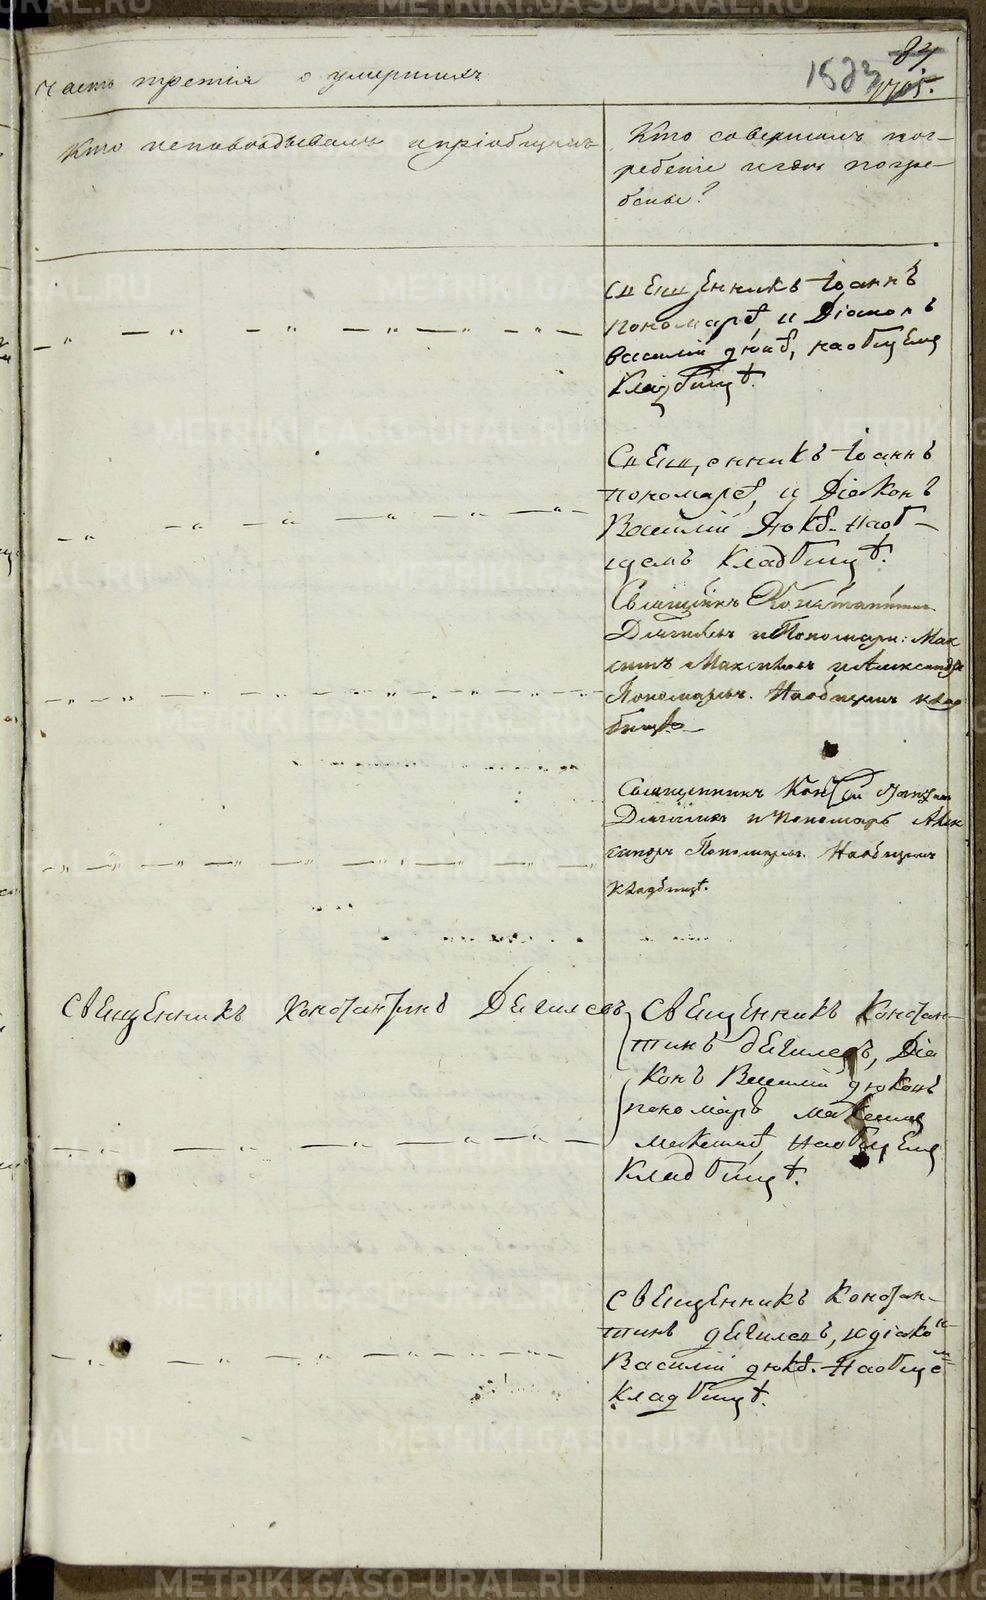 Часть третiя о умершихъ
84
1523
1705.
Кто исповѣдывалъ и прiобщалъ
Кто совершалъ пог-
ребенiе и гдѣ погре-
бены?
Священникъ Iоаннъ
пономаревъ, и Дiаконъ
Василiй дюковъ, на общемъ
Кладбищѣ.
Священникъ Iоаннъ
пономаревъ, и Дiаконъ
Василiй Дюковъ. На об-
щемъ Кладбищѣ.
Священникъ Константинъ
и Пономари: Мак
симъ Максимовъ и Александръ
Пономаревъ. На общемъ клад
бищѣ
Священникъ
и Пономарь Алек
сандръ Пономаревъ. На общемъ
кладбищѣ.
Священникъ Константинъ Дегилевъ
Священникъ Констан-
тинъ дегилевъ, Дiа
конъ Василiй дюковъ
пономарь Максимъ
На общемъ
Кладбищѣ.
Священникъ Констан-
тинъ дегилевъ, и дiаконъ
Василiй дюковъ. На общемъ
Кладбищѣ.
METRIKI.GASO-URAL.RU